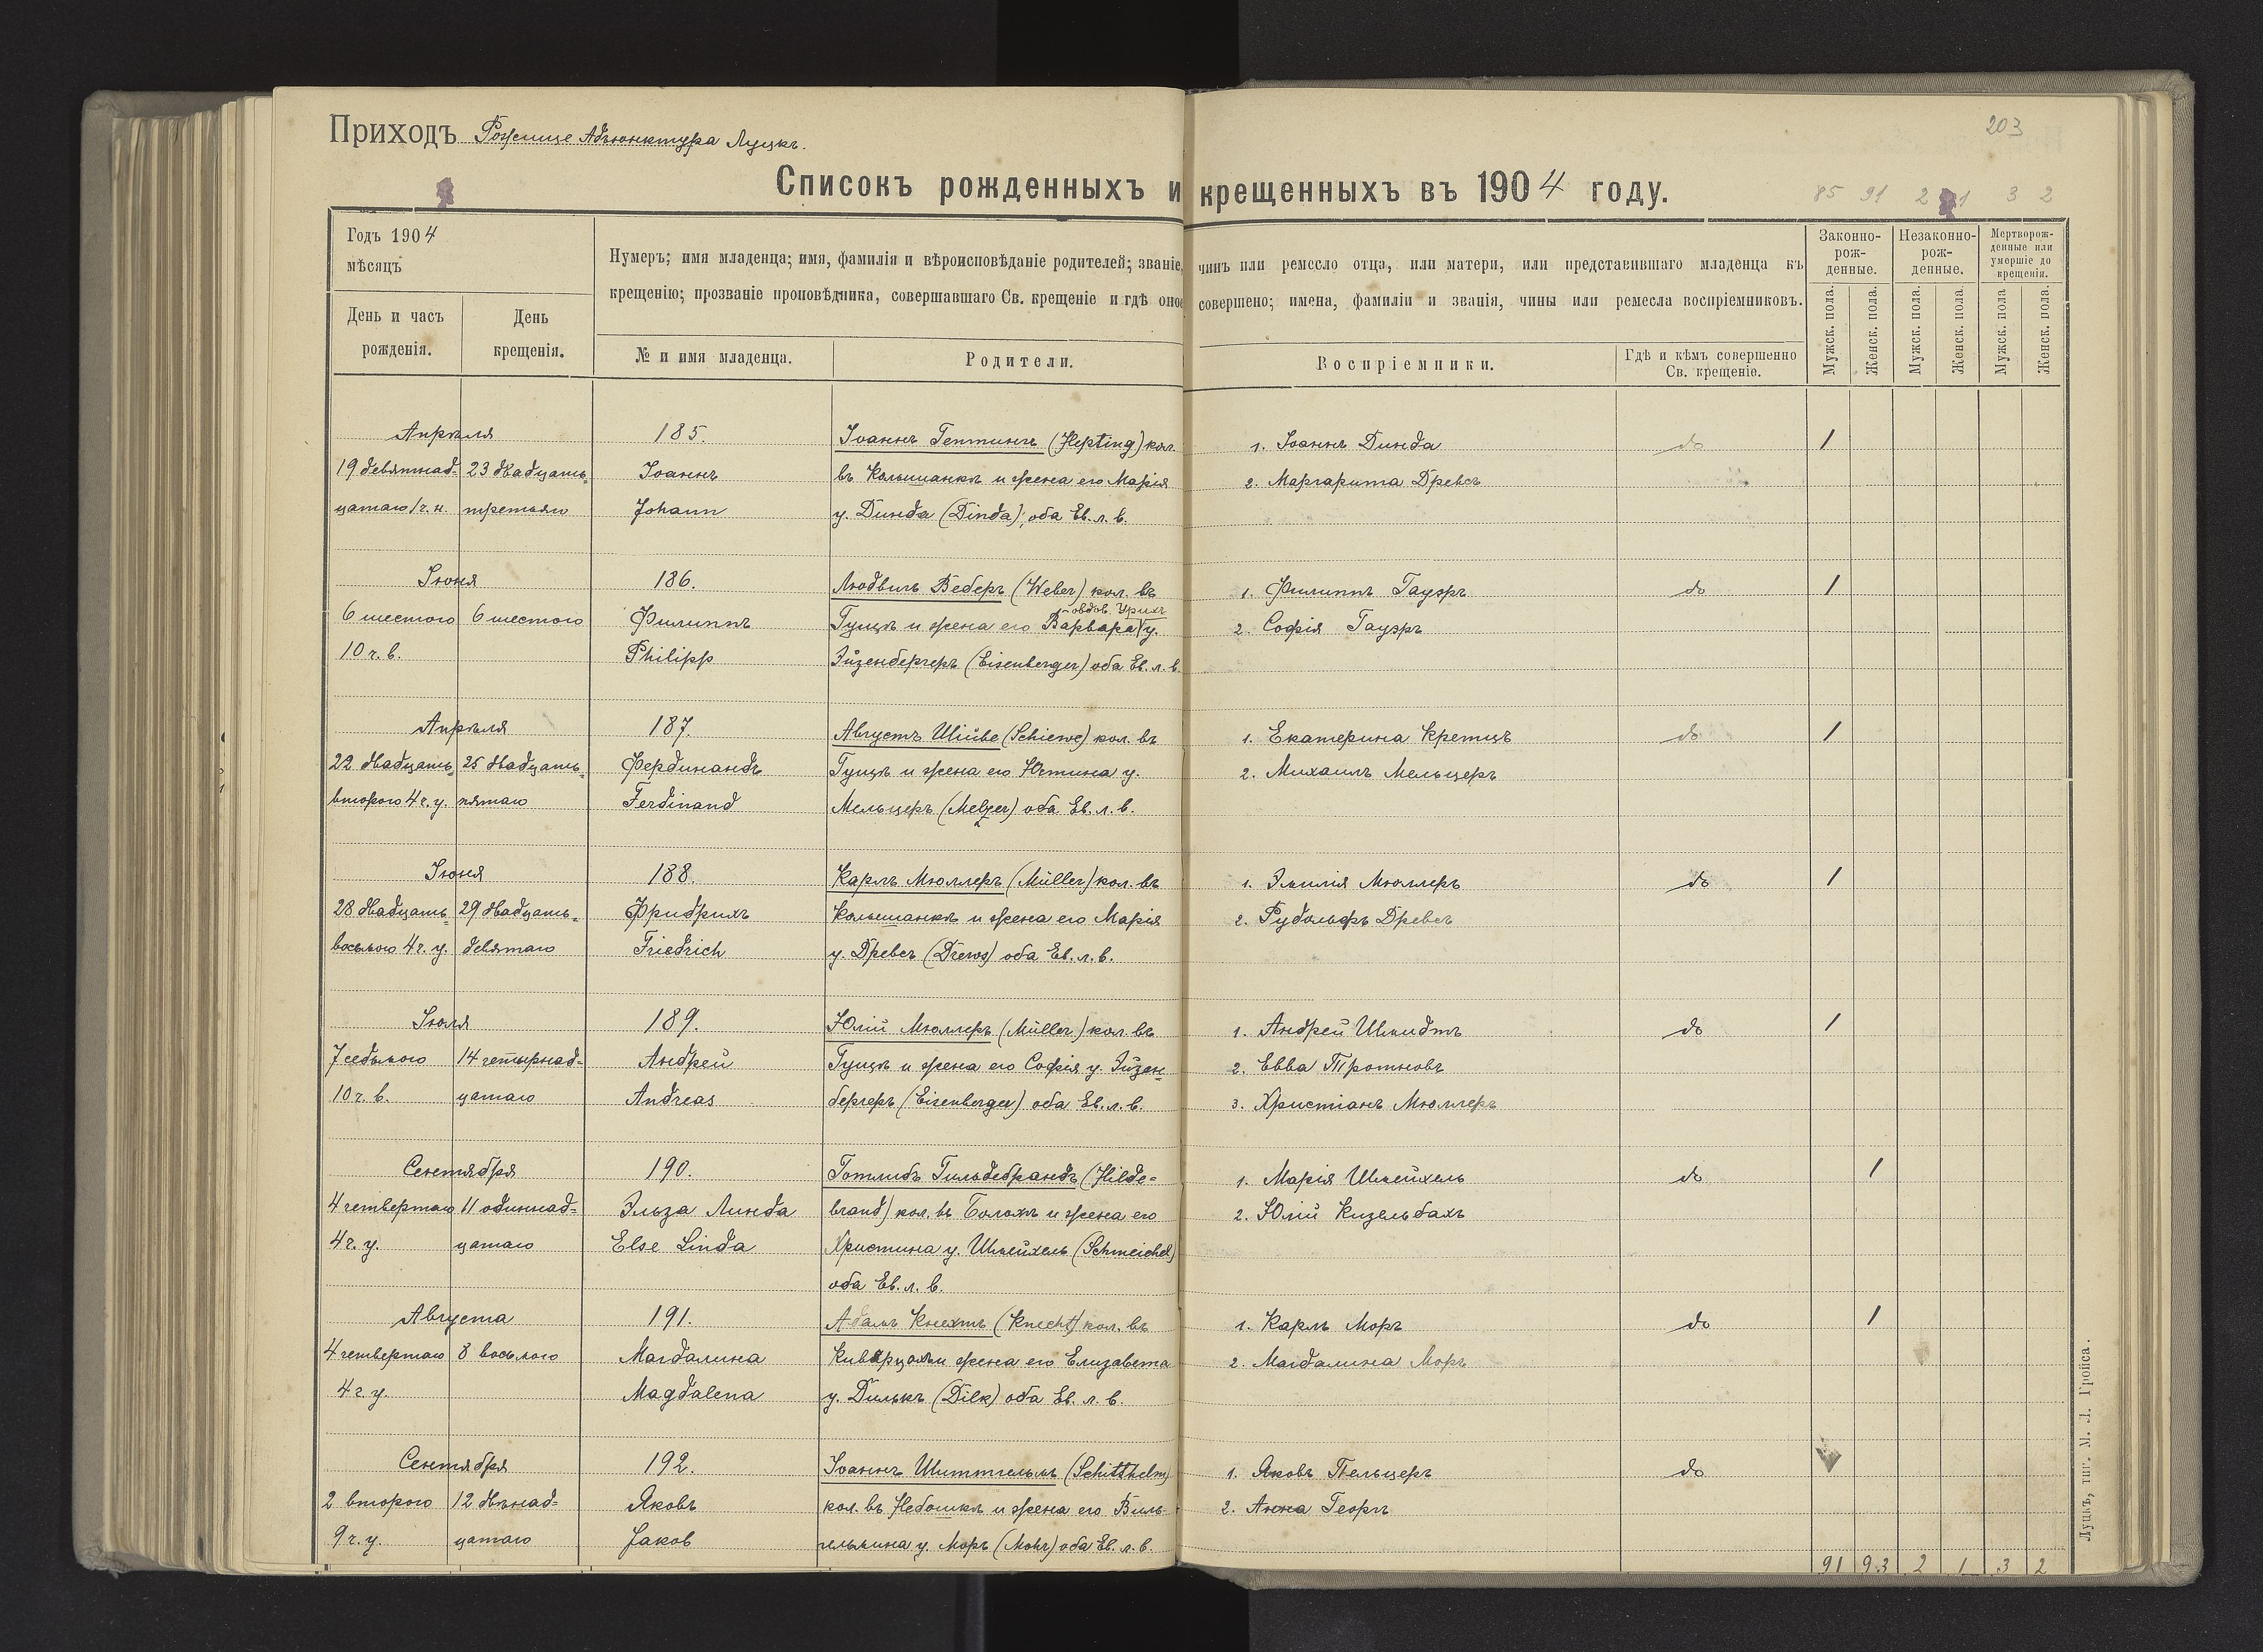 203
Приходъ Рожище Адъюнктура Луцкъ.
Списокъ рожденныхъ и крещенныхъ въ 1904 году.
85 91 2 1 3 2
Годъ 1904
мѣсяцъ
День и часъ
рожденія.
День
крещенія.
Нумеръ; имя младенца; имя, фамилія и вѣроисповѣданіе родителей; званіе, чинъ или ремесло отца, или матери, или представившаго младенца къ
крещенію; прозваніе проповѣдника, совершавшаго Св. крещеніе и гдѣ оное совершено; имена, фамиліи и званія, чины или ремесла воспріемниковъ.
№ и имя младенца.
Родители.
Воспріемники.
Гдѣ и кѣмъ совершенно
Св. крещеніе.
Законно-
рож-
денные.
Незаконно-
рож-
денные.
Мертворож-
денные или
умершіе до
крещенія.
Мужск. пола.
Женск. пола.
Мужск. пола.
Женск. пола.
Мужск. пола
Женск. пола.
Апрѣля 185. Іоаннъ Гептингъ (Hepting) кол. 1. Іоаннъ Динда до 1
19 девятнад- 23 двадцать- Іоаннъ въ Кольшанкѣ и жена его Марія 2. Маргарита Древсъ
цатаго 1 ч. н. третьяго Johann у. Динда (Dinda); оба Ев. л. в.
Іюня 186. Людвигъ Веберъ (Weber) кол. въ 1. Филиппъ Гауэръ до 1
овдов. Урихъ
6 шестого 6 шестого Филиппъ Гущѣ и жена его Варвара у. 2. Софія Гауэръ
10 ч. в. Philipp Эйзенбергеръ (Eisenberger) оба Ев. л. в.
Апрѣля 187. Августъ Шиве (Schiewe) кол. въ 1. Екатерина Кретцъ до 1
22 двадцать- 25 двадцать- Фердинандъ Гущѣ и жена его Юстина у. 2. Михаилъ Мельцеръ
второго 4 ч. у. пятаго Ferdinand Мельцеръ (Melzer) оба Ев. л. в.
Іюня 188. Карлъ Мюллеръ (Müller) кол. въ 1. Эмилія Мюллеръ до 1
28 двадцать- 29 двадцать- Фридрихъ Кольшанкѣ и жена его Марія 2. Рудольфъ Древсъ
восьмого 4 ч. у. девятаго Friedrich у. Древсъ (Drews) оба Ев. л. в.
Іюля 189. Юлій Мюллеръ (Müller) кол. въ 1. Андрей Шмидтъ до 1
7 седьмого 14 четырнад- Андрей Гущѣ и жена его Софія у. Эйзен- 2. Евва Тротновъ
10 ч. в. цатаго Andreas бергеръ (Eisenberger) оба Ев. л. в. 3. Христіанъ Мюллеръ
Сентября 190. Готлибъ Гильдебрандъ (Hilde- 1. Марія Шмейхель до 1
4 четвертаго 11 одиннад- Эльза Линда brand) кол. въ Болохъ и жена его 2. Юлій Кизельбахъ
4 ч. у. цатаго Else Linda Христина у. Шмейхель (Schmeichel)
оба Ев. л. в.
Августа 191. Адамъ Кнехтъ (Knecht) кол. въ 1. Карлъ Моръ до 1
4 четвертаго 8 восьмого Магдалина Киверцахъ и жена его Елизавета 2. Магдалина Моръ
4 ч. у. Magdalena у. Дилькъ (Dilk) оба Ев. л. в.
Сентября 192. Іоаннъ Шиттгельмъ (Schitthelm) 1. Яковъ Пельцеръ до
2 второго 12 двѣнад- Яковъ кол. въ Небошкѣ и жена его Виль- 2. Анна Георгъ
9 ч. у. цатаго Jakob гельмина у. Моръ (Mohr) оба Ев. л. в.
91 93 2 1 3 2
Луцкъ, тип. М. Л. Гройса.